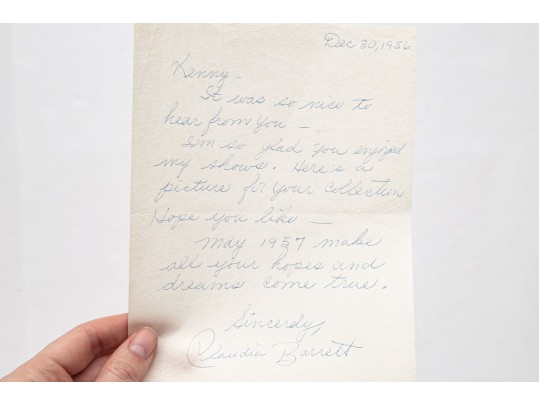 Dec 30, 1956
Kenny -
It was so nice to
hear from you -
I'm so glad you enjoyed
my shows. Here's a
picture for your collection
Hope you like -
May 1957 make
all your hopes and
dreams come true.
Sincerely,
Claudia Barrett